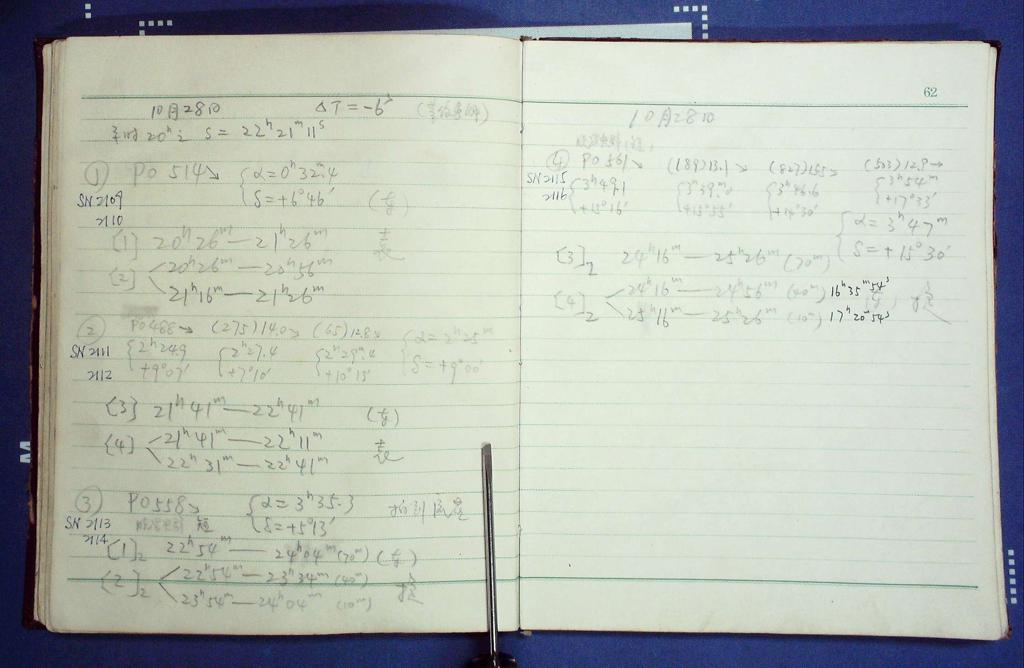 10月28日 ΔT=-6ˢ
20ʰ S=22ʰ21ᵐ11ˢ
① PO 514↘ { α=0ʰ32ᵐ.4
SN 2109 δ=+6°46′
2110
[1] 20ʰ26ᵐ—21ʰ26ᵐ
[2] 20ʰ26ᵐ—20ʰ56ᵐ
21ʰ16ᵐ—21ʰ26ᵐ
② PO488↘ (275)14.0↘ (65)12.8↘ { α=2ʰ25ᵐ
SN 2111 { 2ʰ24.9 { 2ʰ27.4 { 2ʰ29ᵐ.4 δ=+9°00′
2112 +9°07′ +7°10′ +10°15′
[3] 21ʰ41ᵐ—22ʰ41ᵐ
[4] 21ʰ41ᵐ—22ʰ11ᵐ
22ʰ31ᵐ—22ʰ41ᵐ
③ PO558↘ { α=3ʰ35.3
SN 2113 短 δ=+5°13′
2114
[1]₂ 22ʰ54ᵐ—24ʰ04ᵐ(70ᵐ)
[2]₂ 22ʰ54ᵐ—23ʰ34ᵐ(40ᵐ)
23ʰ54ᵐ—24ʰ04ᵐ(10ᵐ)
62
10月28日
④ PO561↘ (189)13.1↘ (827)15.5↘ (503)12.9→
SN 2115 { 3ʰ49.1 { 3ʰ39ᵐ.0 { 3ʰ46.6 { 3ʰ54ᵐ
2116 +15°16′ +15°55′ +14°30′ +17°33′
{ α=3ʰ47ᵐ
δ=+15°30′
[3]₂ 24ʰ16ᵐ—25ʰ26ᵐ(70ᵐ)
[4]₂ 24ʰ16ᵐ—24ʰ56ᵐ(40ᵐ) 16ʰ35ᵐ54ˢ
25ʰ16ᵐ—25ʰ26ᵐ(10ᵐ) 17ʰ20ᵐ54ˢ